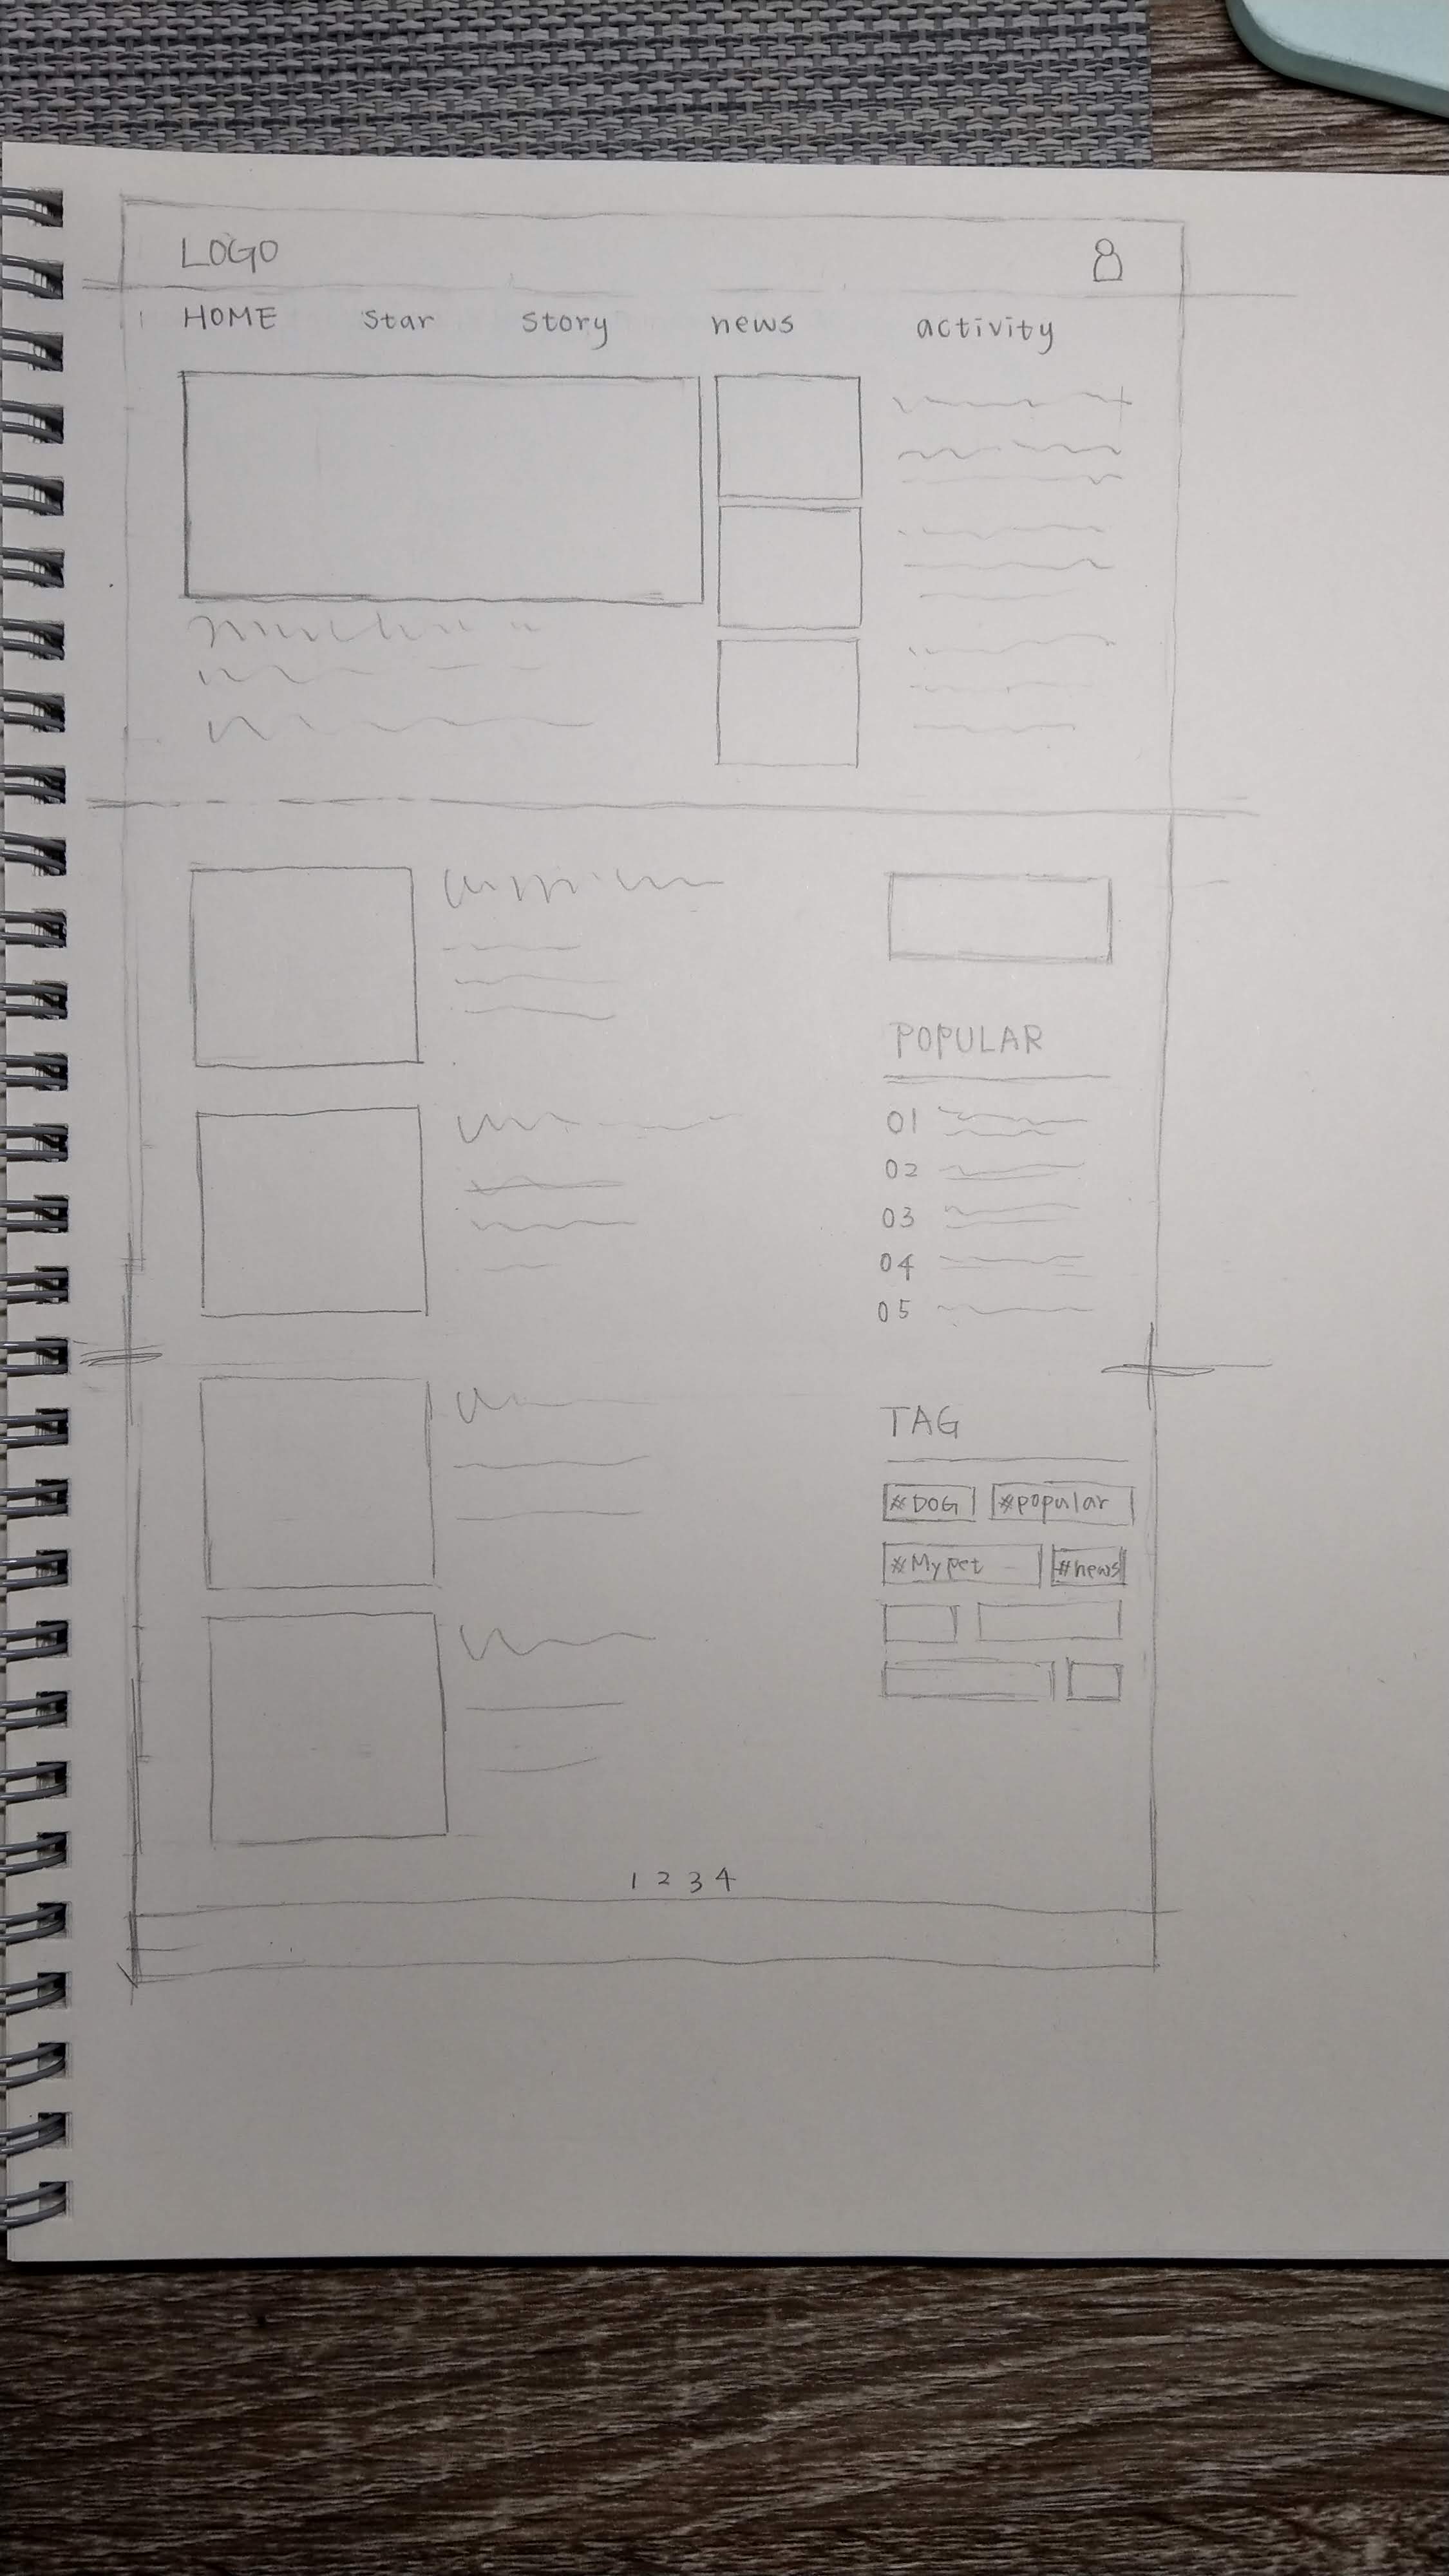 LOGO
HOME star story news activity
POPULAR
01
02
03
04
05
TAG
#DOG #popular
#My pet #news
1 2 3 4